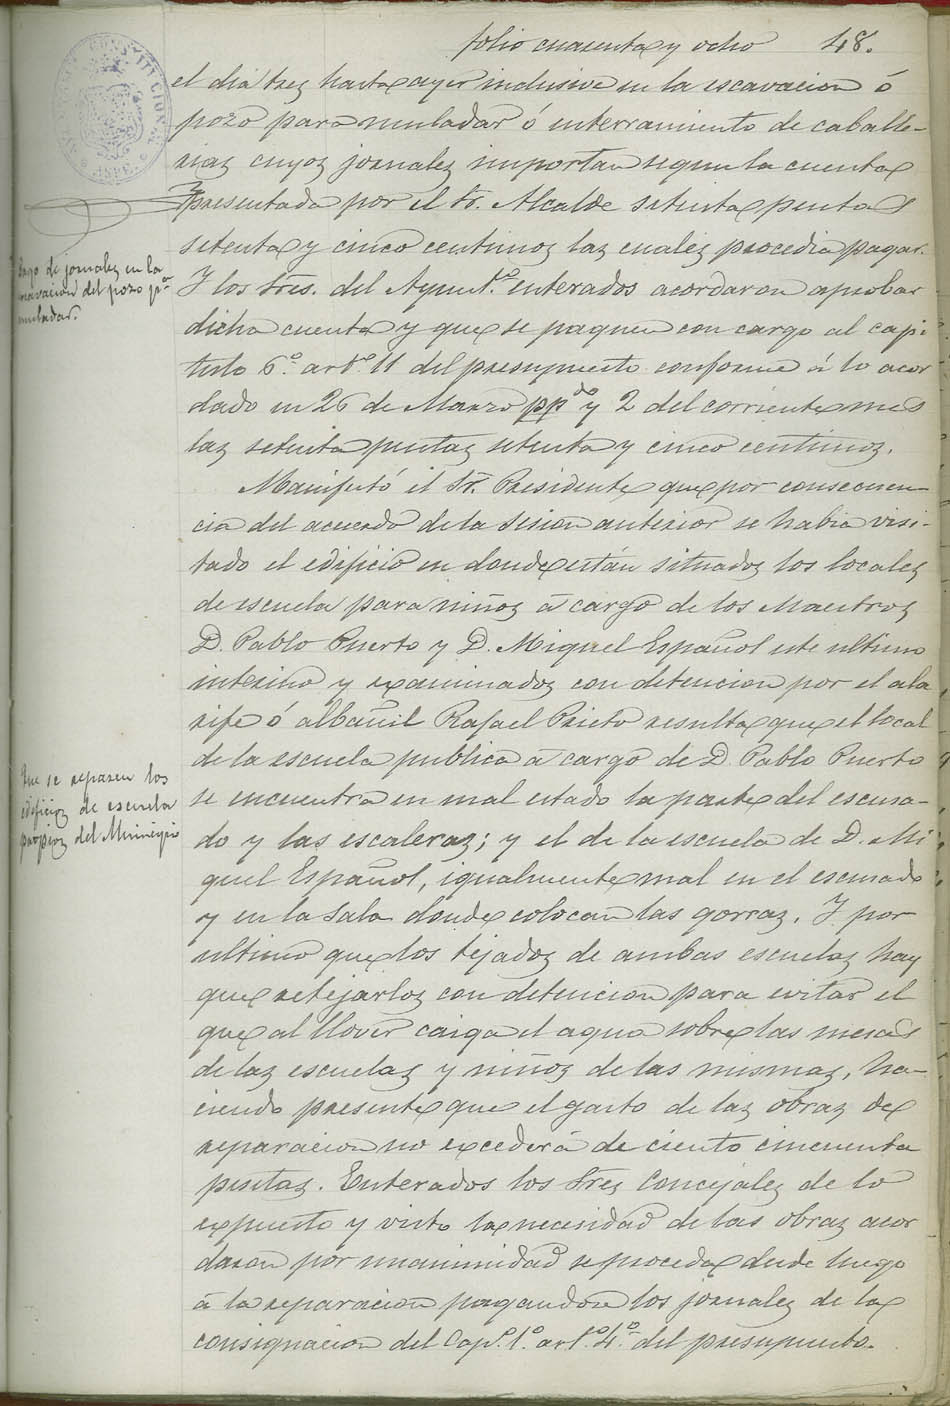 folio cuarenta y ocho 48.
el dia trez hasta ayer inclusive en la escavacion ó
pozo para muladar ó enterramiento de caballe-
riaz cuyoz jornalez importan segun la cuenta
presentada por el Sr. Alcalde setenta pesetas
setenta y cinco centimoz laz cualez procedia pagar.
Y los Sres. del Ayunt.º enterados acordaron aprobar
dicha cuenta y que se paguen con cargo al capi
tulo 6.º art.º 11 del presupuesto conforme á lo acor
dado en 26 de Marzo pp.do y 2 del corriente mes
laz setenta pesetaz setenta y cinco centimoz.
Manifestó el Sr. Presidente que por consecuen-
cia del acuerdo de la sesion anterior se habia visi-
tado el edificio en donde están situadoz los localez
de escuela para niñoz á cargo de los Maestroz
D. Pablo Puerto y D. Miguel Español este ultimo
interino y examinadoz con detencion por el ala
rife ó albañil Rafael Prieto resulta que el local
de la escuela publica á cargo de D. Pablo Puerto
se encuentra en mal estado la parte del escusa-
do y las escaleraz; y el de la escuela de D. Mi
guel Español, igualmente mal en el escusado
y en la sala donde colocan las gorraz. Y por
ultimo que los tejadoz de ambas escuelaz hay
que retejarloz con detencion para evitar el
que al llover caiga el agua sobre las mesas
de laz escuelaz y niñoz de las mismaz, ha-
ciendo presente que el gasto de laz obraz de
reparacion no excederá de ciento cincuenta
pesetaz. Enterados los Srez Concejalez de lo
expuesto y visto la necesidad de las obraz acor
daron por unanimidad se proceda desde luego
á la reparacion pagandose los jornalez de la
consignacion del Cap.º 1.º art.º 4.º del presupuesto.
Pago de jornalez en la
escavacion del pozo p.ª
muladar.
Que se reparen los
edificioz de escuela
propioz del Municipio
AYUNTAMIENTO CONSTITUCIONAL